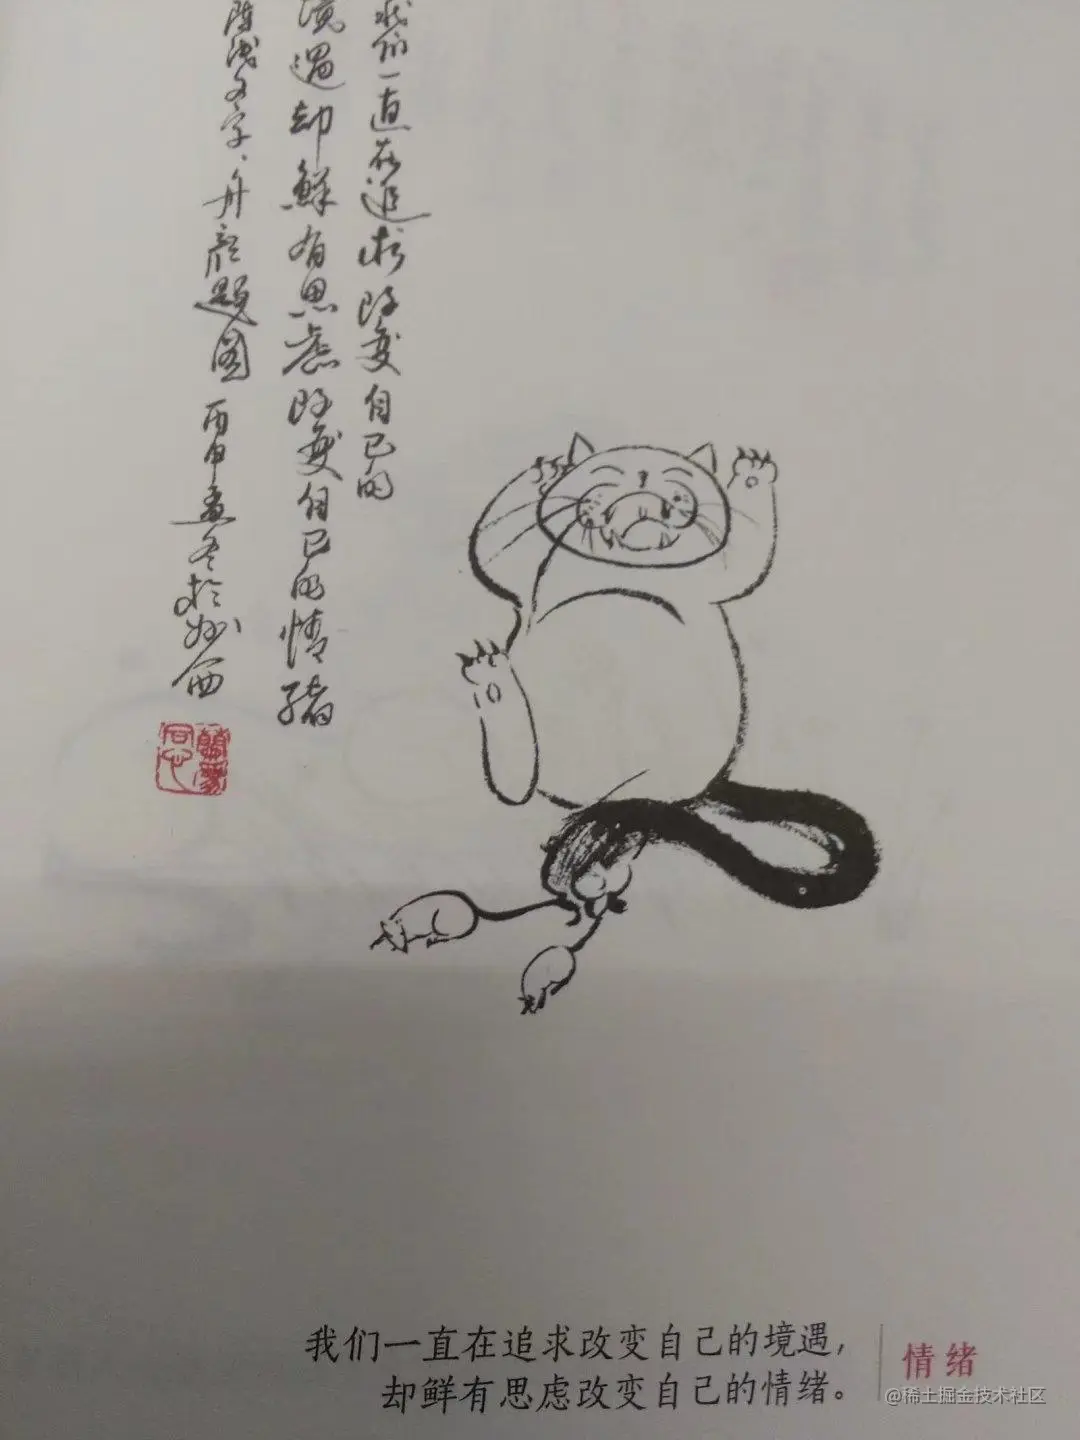 我们一直在追求改变自己的
境遇却鲜有思虑改变自己的情绪
文字、舟
题图 丙申孟冬於
我们一直在追求改变自己的境遇，
却鲜有思虑改变自己的情绪。
情绪
@稀土掘金技术社区